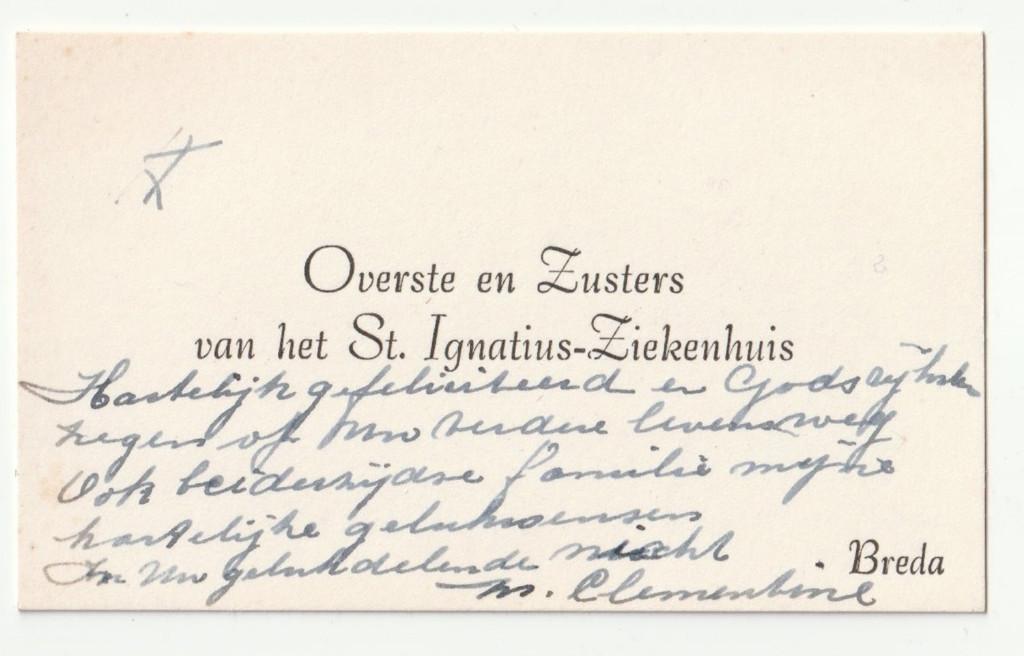 Overste en Zusters
van het St. Ignatius-Ziekenhuis
Hartelijk gefeliciteerd en Gods rijksten
zegen op Uw verdere levensweg
Ook beiderzijdse familie mijne
hartelijke gelukwensen
In Uw geluk delende nicht
Breda
M. Clementine